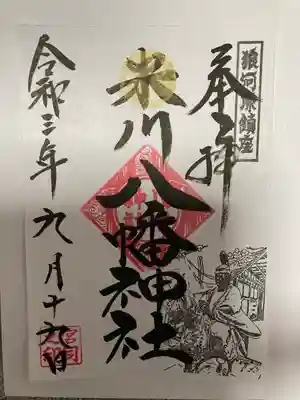 狼河原鎮座
奉拝
米川
八幡神社
令和三年
九月十九日